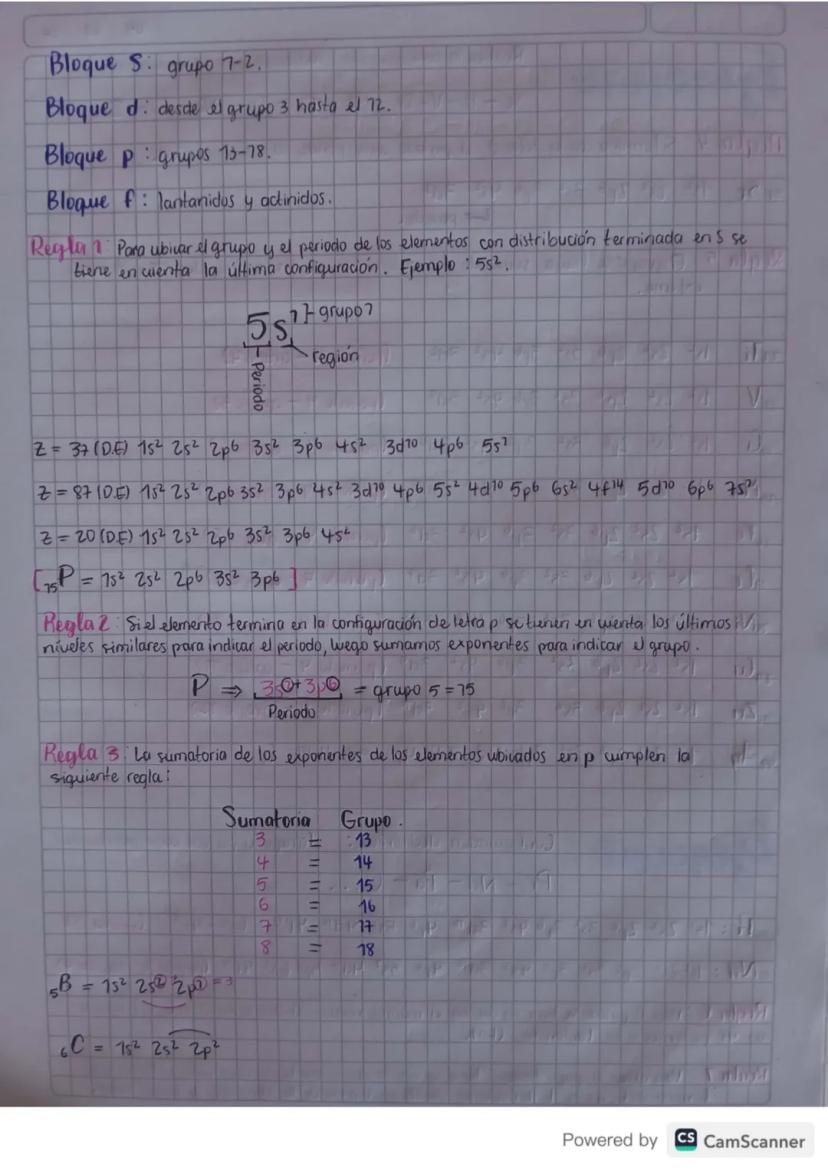 Bloque s: grupo 1-2.
Bloque d: desde el grupo 3 hasta el 12.
Bloque p: grupos 13-18.
Bloque f: lantanidos y actinidos.
Regla 1: Para ubicar el grupo y el periodo de los elementos con distribución terminada en s se
tiene en cuenta la última configuración. Ejemplo: 5s².
5s¹ }- grupo 1
región
Periodo
Z = 37 (D.E) 1s² 2s² 2p⁶ 3s² 3p⁶ 4s² 3d¹⁰ 4p⁶ 5s¹
Z = 87 (D.E) 1s² 2s² 2p⁶ 3s² 3p⁶ 4s² 3d¹⁰ 4p⁶ 5s² 4d¹⁰ 5p⁶ 6s² 4f¹⁴ 5d¹⁰ 6p⁶ 7s¹
Z = 20 (D.E) 1s² 2s² 2p⁶ 3s² 3p⁶ 4s²
[₁₅P = 1s² 2s² 2p⁶ 3s² 3p⁶]
Regla 2: Si el elemento termina en la configuración de letra p se tienen en cuenta los últimos
niveles similares para indicar el periodo, luego sumamos exponentes para indicar el grupo.
P ⇒ 3s② + 3p⑥ = grupo 5 = 15
Periodo
Regla 3: La sumatoria de los exponentes de los elementos ubicados en p cumplen la
siguiente regla:
Sumatoria Grupo.
3 = 13
4 = 14
5 = 15
6 = 16
7 = 17
8 = 18
₅B = 1s² 2s② 2p① = 3
₆C = 1s² 2s² 2p²
Powered by CS CamScanner